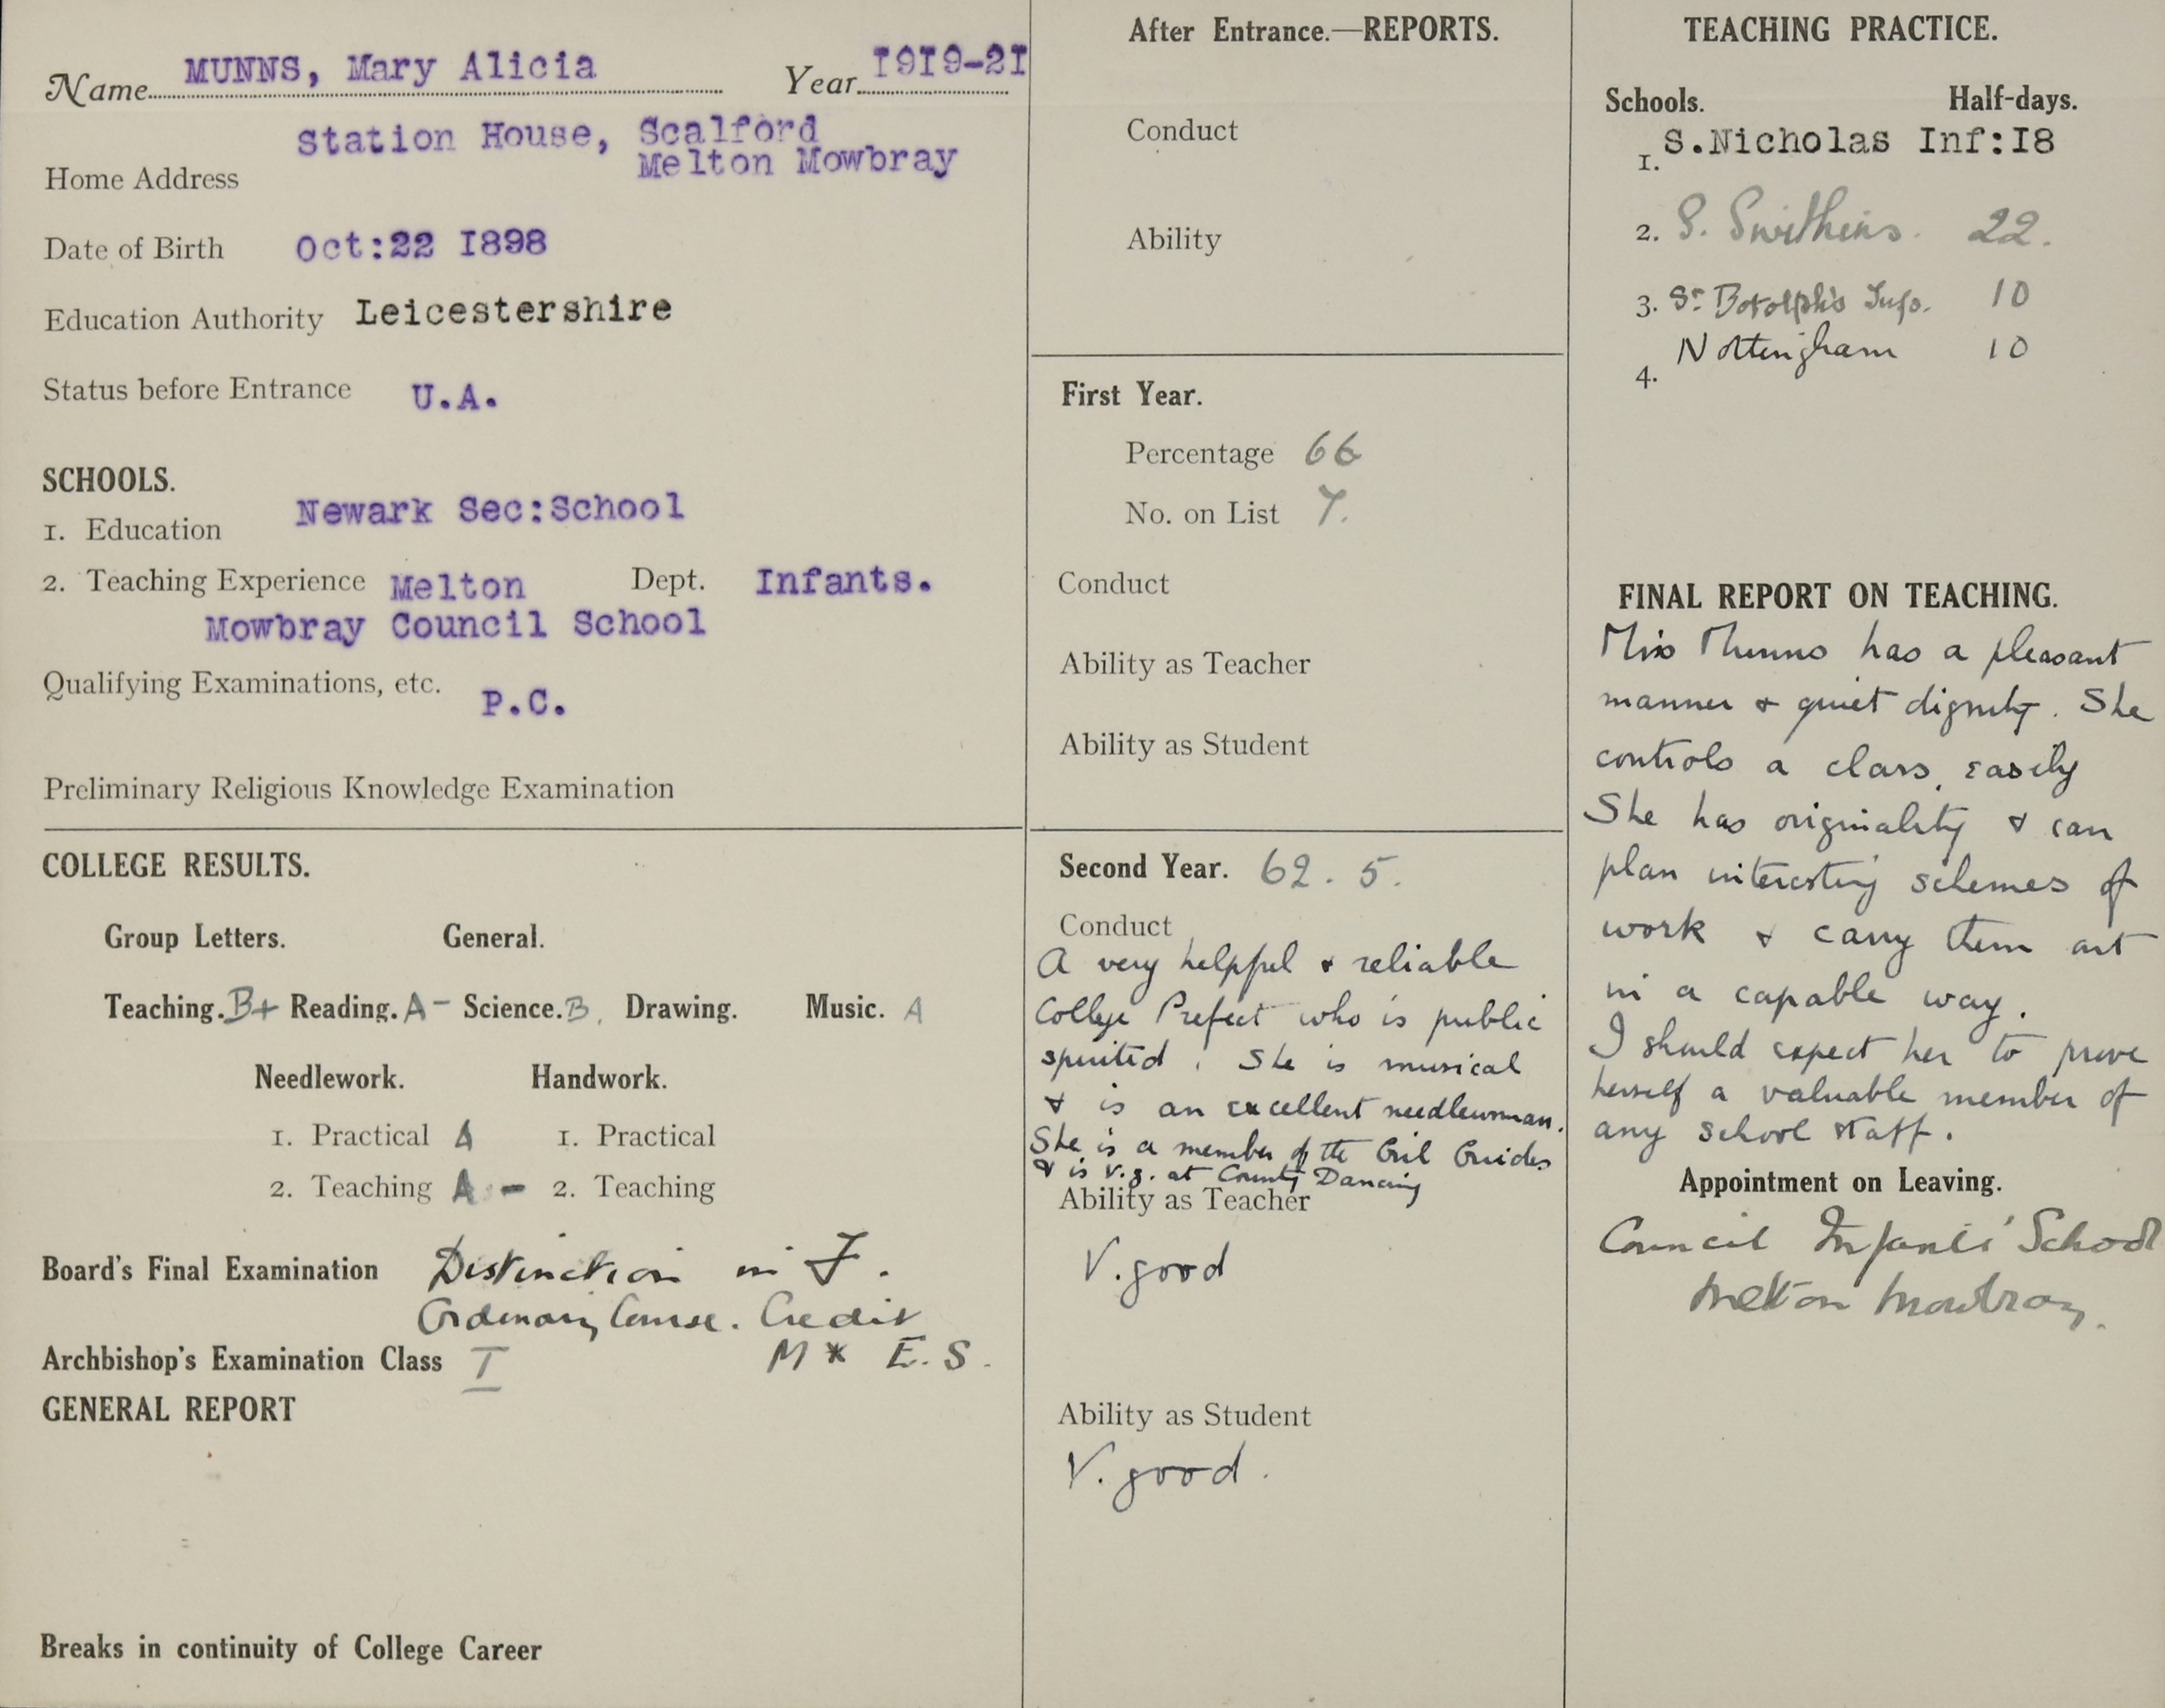 Name MUNNS, Mary Alicia Year I9I9-2I
Station House, Scalford
Melton Mowbray
Home Address
Date of Birth Oct:22 I898
Education Authority Leicestershire
Status before Entrance U.A.
SCHOOLS.
1. Education Newark Sec:School
2. Teaching Experience Melton Dept. Infants.
Mowbray Council School
Qualifying Examinations, etc. P.C.
Preliminary Religious Knowledge Examination
COLLEGE RESULTS.
Group Letters. General.
Teaching. B+ Reading. A- Science. B. Drawing. Music. A
Needlework. Handwork.
1. Practical A 1. Practical
2. Teaching A - 2. Teaching
Board's Final Examination Distinction in F.
Ordinary Course. Credit
Archbishop's Examination Class I M * E.S.
GENERAL REPORT
Breaks in continuity of College Career
After Entrance.—REPORTS.
Conduct
Ability
First Year.
Percentage 66
No. on List 7.
Conduct
Ability as Teacher
Ability as Student
Second Year. 62. 5.
Conduct
A very helpful & reliable
College Prefect who is public
spirited. She is musical
& is an excellent needlewoman.
She is a member of the Girl Guides
& is v.g. at County Dancing
Ability as Teacher
V. good
Ability as Student
V. good.
TEACHING PRACTICE.
Schools. Half-days.
1. S.Nicholas Inf:I8
2. S. Swithins. 22.
3. St Botolph's Infs. 10
Nottingham 10
4.
FINAL REPORT ON TEACHING.
Miss Munns has a pleasant
manner & quiet dignity. She
controls a class easily
She has originality & can
plan interesting schemes of
work & carry them out
in a capable way.
I should expect her to prove
herself a valuable member of
any school staff.
Appointment on Leaving.
Council Infants' School
Melton Mowbray.